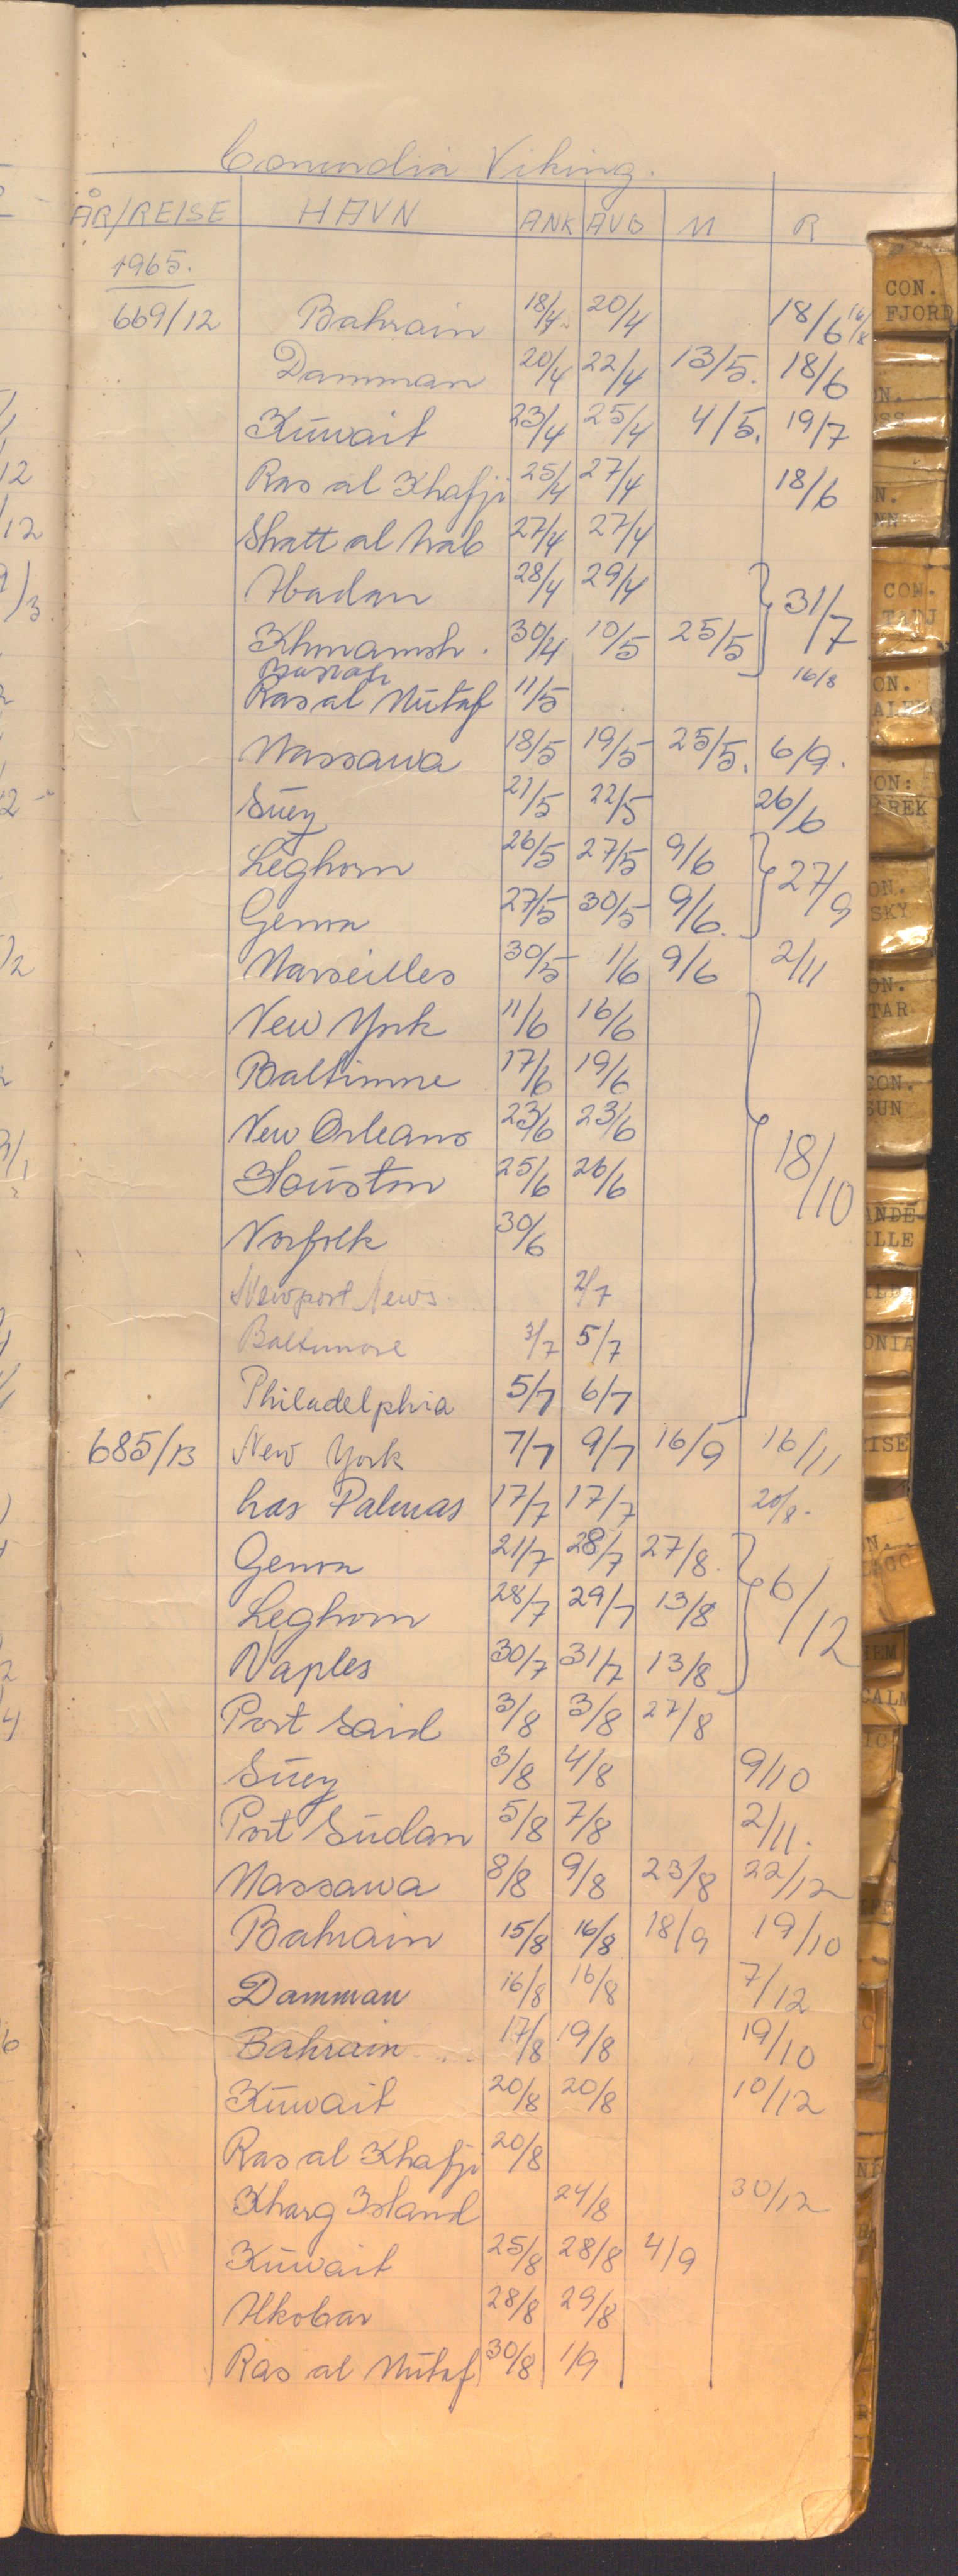 Concordia Viking.
ÅR/REISE HAVN ANK AVG M R
1965.
669/12 Bahrain 18/4 20/4 18/6 16/8
Damman 20/4 22/4 13/5. 18/6
Kuwait 23/4 25/4 4/5. 19/7
Ras al Khafji 25/4 27/4 18/6
Shatt al Arab 27/4 27/4
Abadan 28/4 29/4 31/7
Khoramsh. 30/4 10/5 25/5
Basrah 16/8
Ras al Mutaf 11/5
Massawa 18/5 19/5 25/5. 6/9.
Suez 21/5 22/5 26/6
Leghorn 26/5 27/5 9/6 27/9
Genoa 27/5 30/5 9/6.
Marseilles 30/5 1/6 9/6 2/11
New York 11/6 16/6
Baltimore 17/6 19/6
New Orleans 23/6 23/6
Houston 25/6 26/6 18/10
Norfolk 30/6
Newport News. 2/7
Baltimore 3/7 5/7
Philadelphia 5/7 6/7
685/13 New York 7/7 9/7 16/9 16/11
Las Palmas 17/7 17/7 20/8.
Genoa 21/7 28/7 27/8. 6/12
Leghorn 28/7 29/7 13/8
Naples 30/7 31/7 13/8
Port Said 3/8 3/8 27/8
Suez 3/8 4/8 9/10
Port Sudan 5/8 7/8 2/11.
Massawa 8/8 9/8 23/8 22/12
Bahrain 15/8 16/8 18/9 19/10
Damman 16/8 16/8 7/12
Bahrain 17/8 19/8 19/10
Kuwait 20/8 20/8 10/12
Ras al Khafji 20/8
Kharg Island 24/8 30/12
Kuwait 25/8 28/8 4/9
Alkobar 28/8 29/8
Ras al Mutaf 30/8 1/9
CON.
FJORD
CON.
TADJ
SKY
TAR
SUN